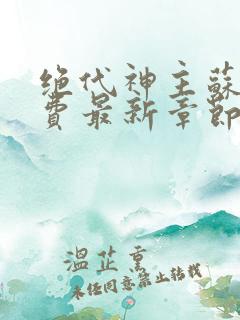 绝代神主蘇
費最新章節
溫芷熏
未经同意禁止转载